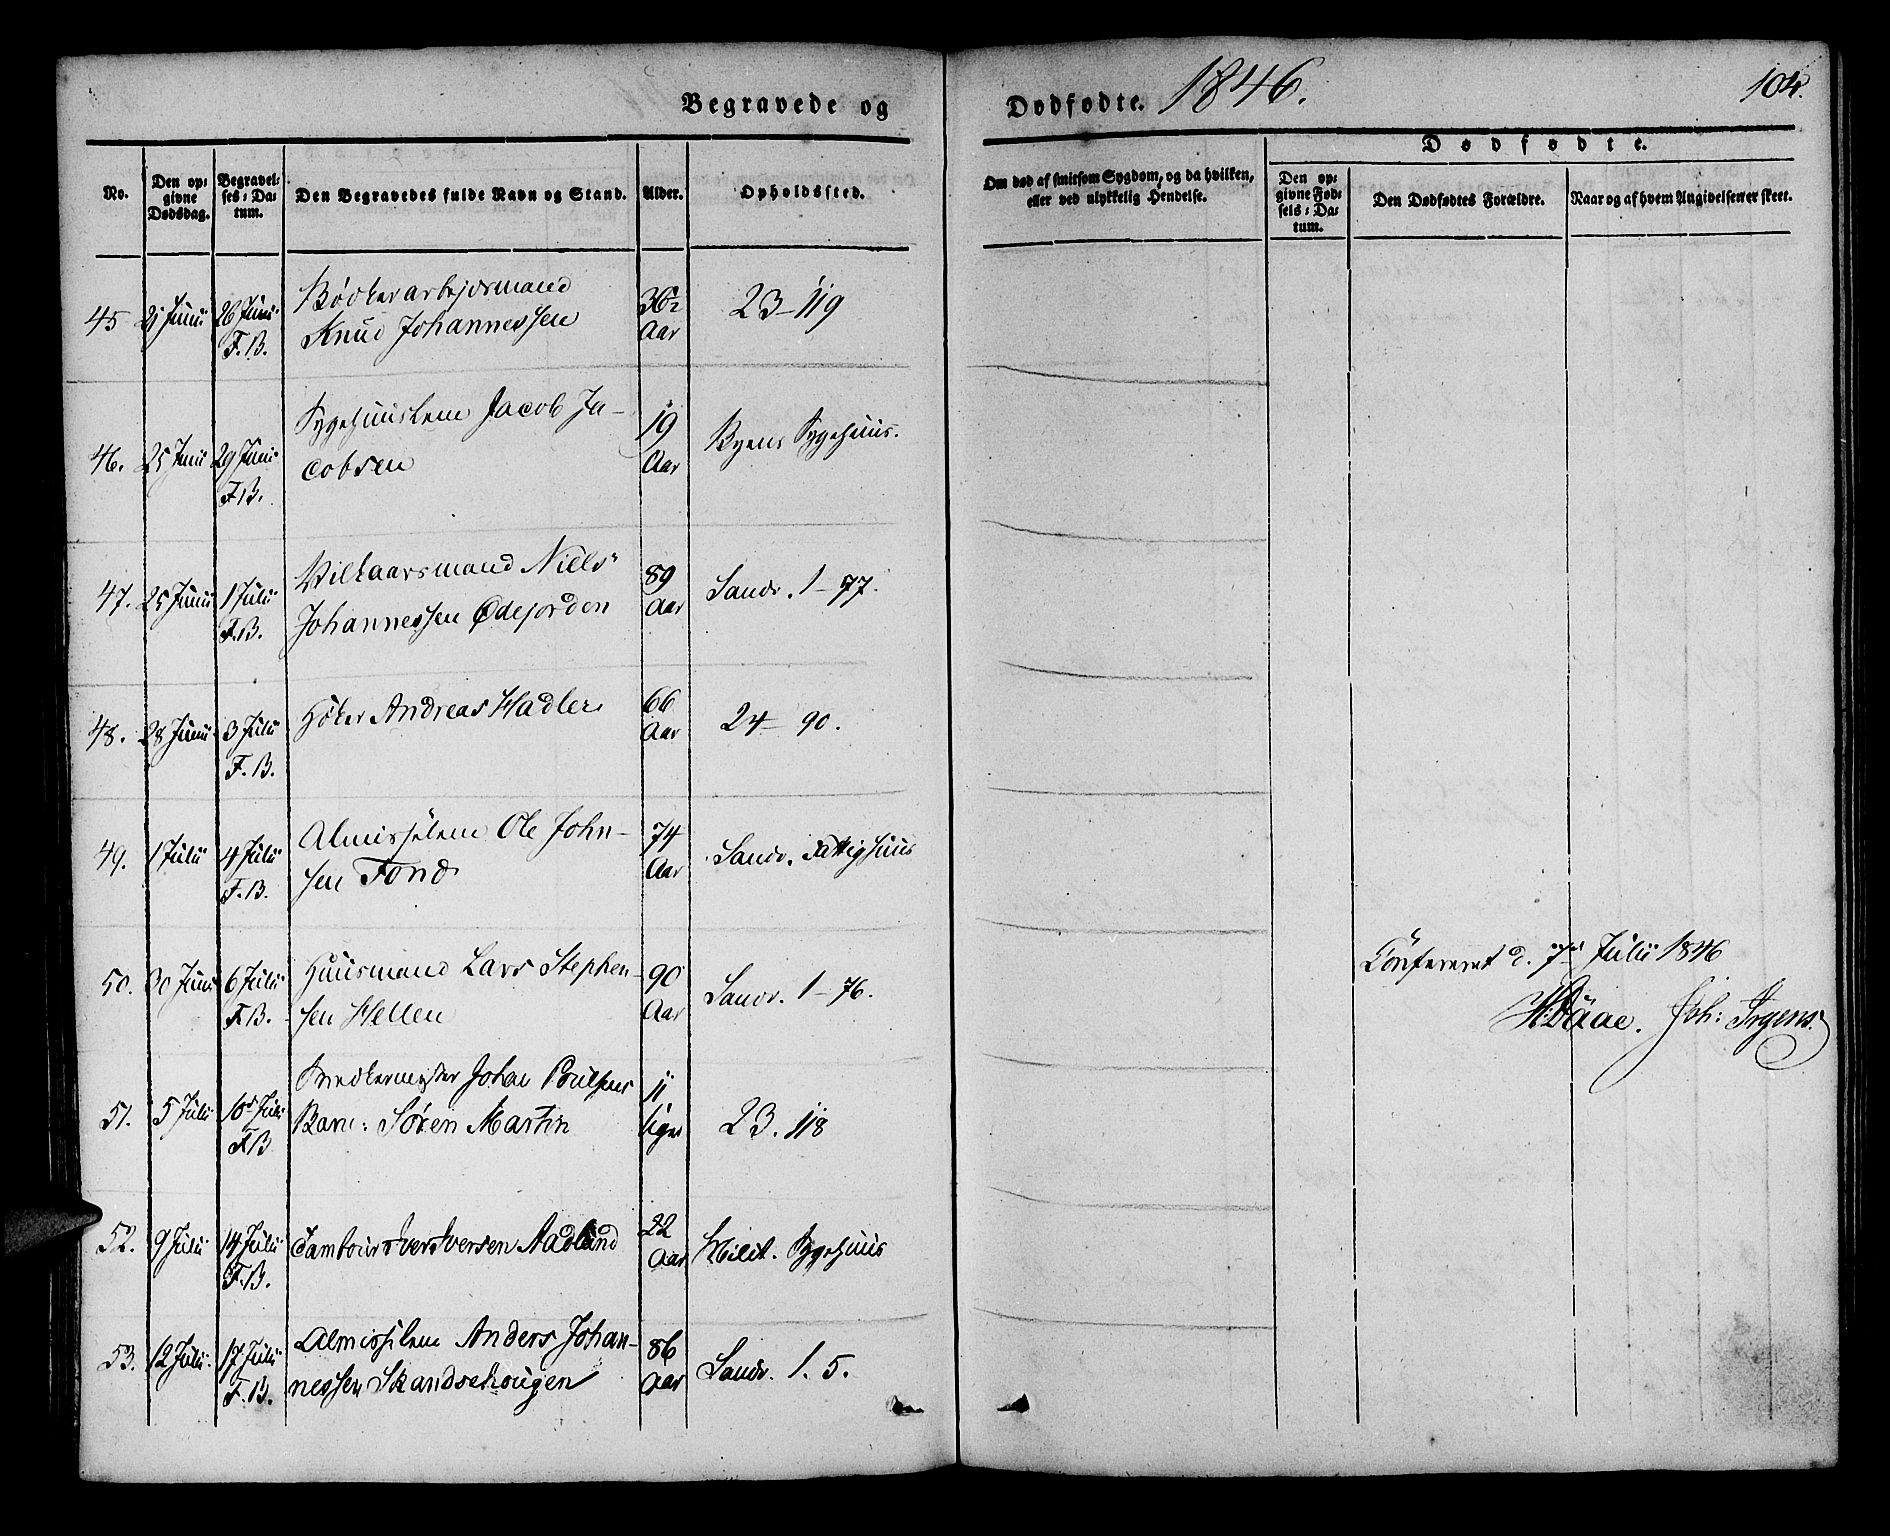 Begravede og
Dödfödte. 1846.
104.
No.
Den op-
givne
Dödsdag.
Begravel-
ses-Da-
tum.
Den Begravedes fulde Navn og Stand.
Alder.
Opholdssted.
Om död af smitsom Sygdom, og da hvilken,
eller ved ulykkelig Hendelse.
Dödfödte.
Den op-
givne Föd-
sels-Da-
tum.
Den Dödfödtes Forældre.
Naar og af hvem Angivelsen er skeet.
45 21 Junii 26 Junii
F. B.
Bödkerarbejdsmand
Knud Johannessen
Aar
23-119
46. 25 Junii 29 Junii
F.B.
Sygehuuslem Jacob Ja-
cobsen
19
Aar
Byens Sygehuus.
47. 25 Junii 1 Julii
F.B.
Vilkaarsmand Niels
Johannessen Ödejorden
89
Aar
Sandv. 1-77.
48. 28 Junii 3 Julii
F. B.
Höker Andreas Hadler
66
Aar
24-90.
49. 1 Julii 4 Julii
F. B.
Almisselem Ole John-
sen Fond
74
Aar
Sandv. Fattighuus
50. 30 Junii 6 Julii
F.B.
Huusmand Lars Stephen-
sen Hellen
90
Aar
Sandv. 1-76.
Confereret d. 7de Julii 1846
HDaae. Joh: Irgens.
51. 5 Julii 10d Julii
F.B
Snedkermester Johan Poulsens
Barn: Sören Martin
11
Uger
23. 118
52. 9 Julii 14 Julii
F.B.
Tambour Iver Iversen Aadland
22
Aar
Milit. Sygehuus
53. 12 Julii 17 Julii
F.B.
Almisselem Anders Johan-
nessen Skandsehougen
86
Aar
Sandv. 1. 5.